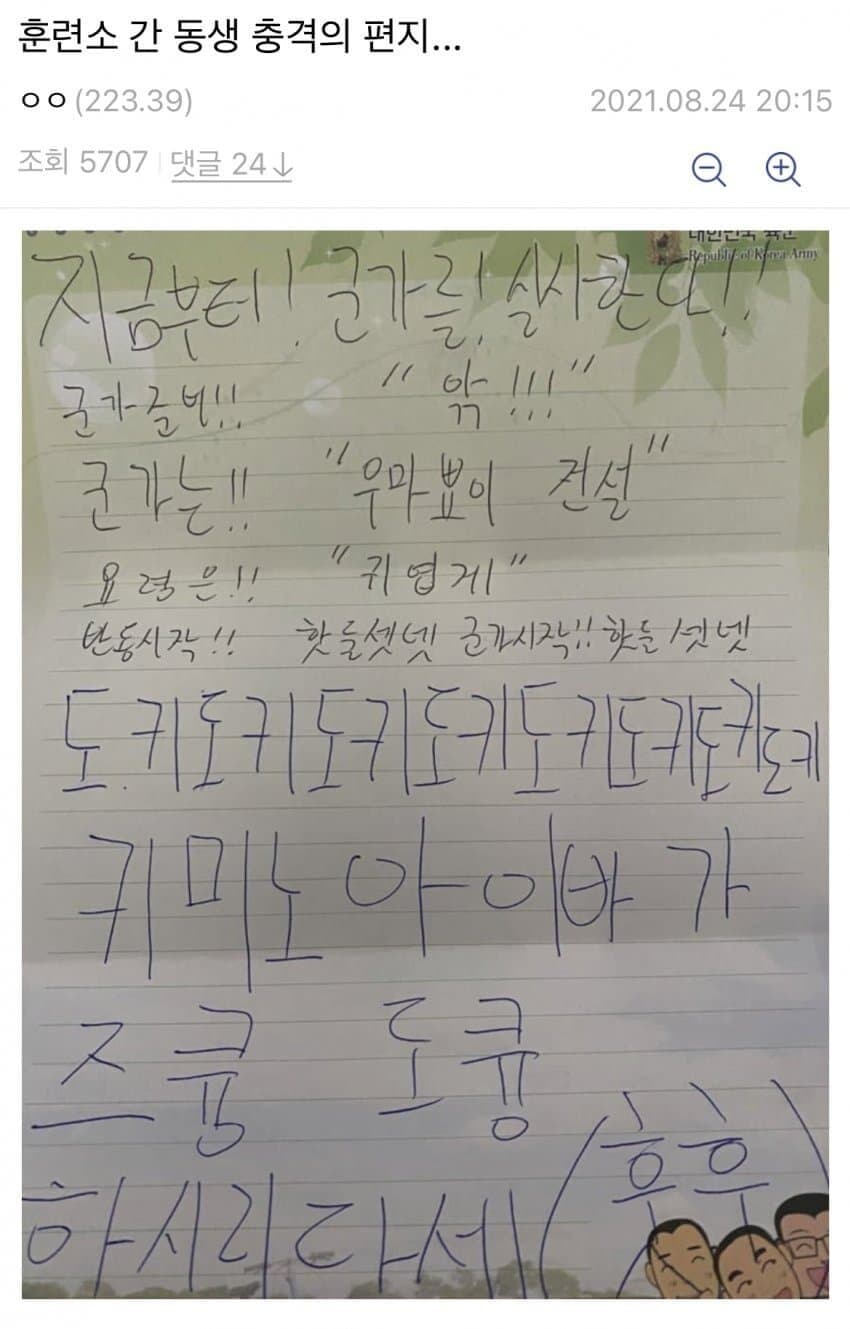 훈련소 간 동생 충격의 편지...
ㅇㅇ(223.39) 2021.08.24 20:15
조회 5707 댓글 24↓
대한민국 육군
Republic of Korea Army
지금부터! 군가를! 실시한다!!
군가준비!! "악!!!"
군가는!! "우마뾰이 전설"
요령은!! "귀엽게"
반동시작!! 핫둘셋넷 군가시작!! 핫둘셋넷
도키도키도키도키도키도키도키도키
키미노아이바가
즈큥 도큥
하시리다세 (후후)